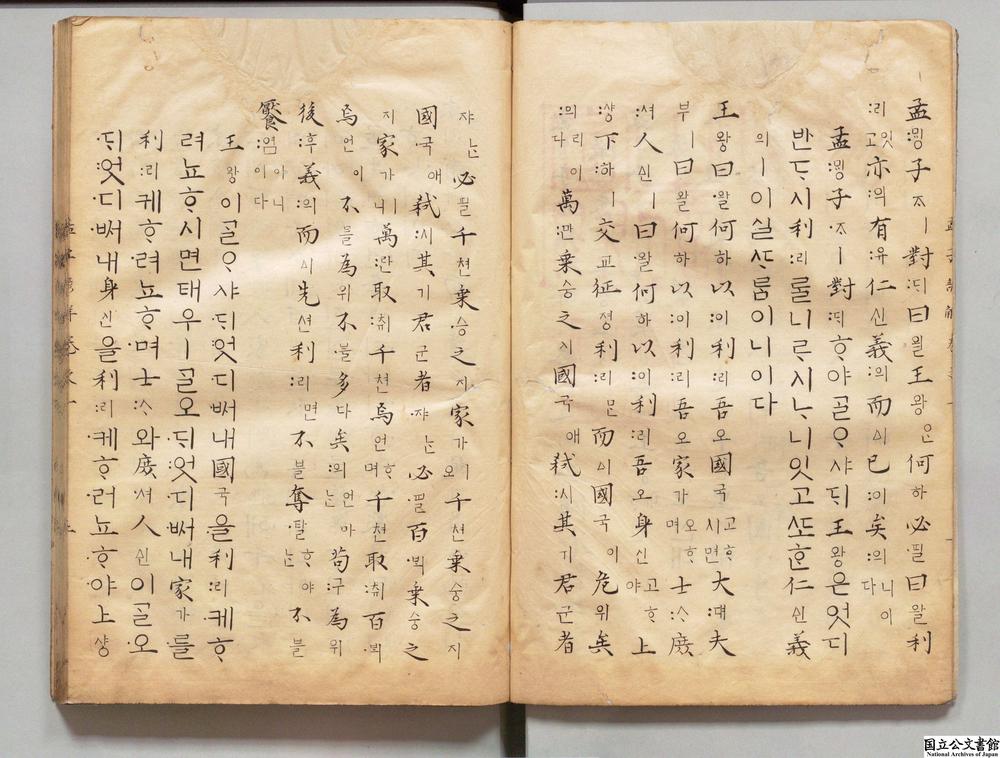 孟:ᄆᆡᆼ子ᄌᆞㅣ對:ᄃᆡ曰왈王왕은何하必·필曰왈利
:리잇고亦:의有:유仁신義:의而ᅀᅵ已:이矣:의니이다
孟:ᄆᆡᆼ子·ᄌᆞㅣ對:ᄃᆡᄒᆞ·야ᄀᆞᆯᄋᆞ·샤ᄃᆡ王왕은엇디
반·ᄃᆞ시利:리ᄅᆞᆯ니ᄅᆞ·시ᄂᆞ니잇고ᄯᅩᄒᆞᆫ仁신義
:의ㅣ이실ᄯᆞᄅᆞᆷ이니이다
王왕曰·왈何하以:이利:리吾오國국고ᄒᆞ시면大:대夫
부ㅣ曰왈何하以:이利:리吾오家가오ᄒᆞ며士:ᄉᆞ庶
:셔人신ㅣ曰·왈何하以:이利:리吾오身신고ᄒᆞ야上
:샹下:하ㅣ交교征졍利:리면而ᅀᅵ國국이危위矣
:의리이다萬:만乘승之지國국애弑:시其기君군者
쟈ᄂᆞᆫ必필千쳔乘승之지家가ㅣ오千쳔乘승之지
國·국애弑:시其기君군者:쟈ᄂᆞᆫ必·필百·ᄇᆡᆨ乘승之
지家가ㅣ니萬:만取:츄千쳔焉언ᄒᆞ며千쳔取:츄百·ᄇᆡᆨ
焉언이不블為위不·블多다矣:의언마ᄂᆞᆫ苟:구為위
後:후義:의而ᅀᅵ先션利:리면不블奪·탈ᄒᆞ야ᄂᆞᆫ不블
饜:염이아니이다
王왕이ᄀᆞᆯᄋᆞ·샤ᄃᆡ:엇디·ᄡᅥ내國국을利:리·케ᄒᆞ·
려뇨·ᄒᆞ시면태우ㅣᄀᆞᆯ오ᄃᆡ:엇디·ᄡᅥ내家가를
利:리케ᄒᆞ·려뇨ᄒᆞ·며士:ᄉᆞ와庶:셔人신이ᄀᆞᆯ·오
ᄃᆡ:엇디·ᄡᅥ내身신을利:리·케ᄒᆞ·려뇨ᄒᆞ·야上샹
国立公文書館
National Archives of Japan